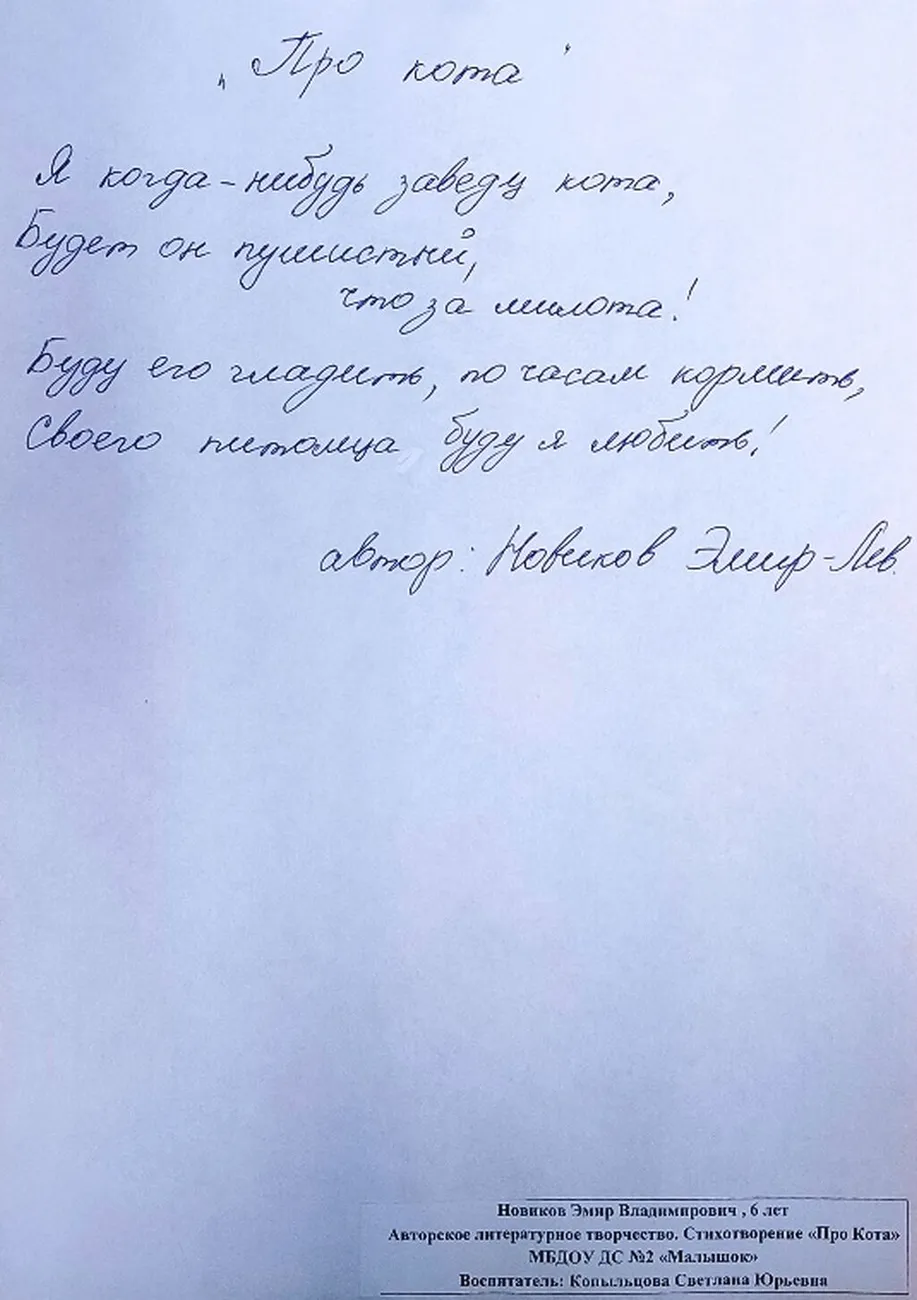 „Про кота"
Я когда-нибудь заведу кота,
Будет он пушистый,
что за милота!
Буду его гладить, по часам кормить,
Своего питомца буду я любить!
автор: Новиков Эмир-Лев.
Новиков Эмир Владимирович , 6 лет
Авторское литературное творчество. Стихотворение «Про Кота»
МБДОУ ДС №2 «Малышок»
Воспитатель: Копыльцова Светлана Юрьевна